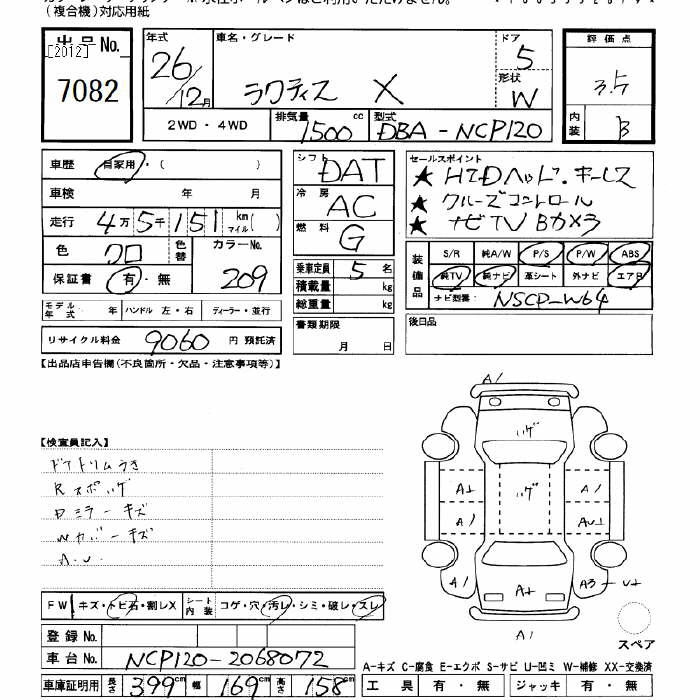 (複合機)対応用紙
出品No.
[2012]
7082
年式
26/12月
車名・グレード
ラクティス X
ドア
5
形状
W
評価点
3.5
内装
B
2WD・4WD
排気量
1500 cc
型式
DBA-NCP120
車歴 自家用・( )
車検 年 月
走行 4万5千151 km マイル( )
色 クロ 色替 カラーNo. 209
保証書 有・無
シフト DAT
冷房 AC
燃料 G
乗車定員 5 名
積載量 kg
総重量 kg
書類期限
月 日
セールスポイント
★ HIDヘッド・キーレス
★ クルーズコントロール
★ ナビTV Bカメラ
装備品
S/R 純A/W P/S P/W ABS
純TV 純ナビ 革シート 外ナビ エアB
ナビ型番 NSCP-W64
後日品
モデル年式 年 ハンドル 左・右 ディーラー・並行
リサイクル料金 9060 円 預託済
【出品店申告欄(不良箇所・欠品・注意事項等)】
【検査員記入】
ドアトリムうき
R スポ ハゲ
Dミラーキズ
Wカバーキズ
A.U.
A1
ハゲ
ハゲ
A1
A1
A1
A1
A1
A1
FW キズ・トビ石・割レX シート内装 コゲ・穴・汚レ・シミ・破レ・スレ
登録No.
車台No. NCP120-2068072
車庫証明用 長さ 399cm 幅 169cm 高さ 158cm
スペア
A-キズ C-腐食 E-エクボ S-サビ U-凹ミ W-補修 XX-交換済
工具 有・無 ジャッキ 有・無